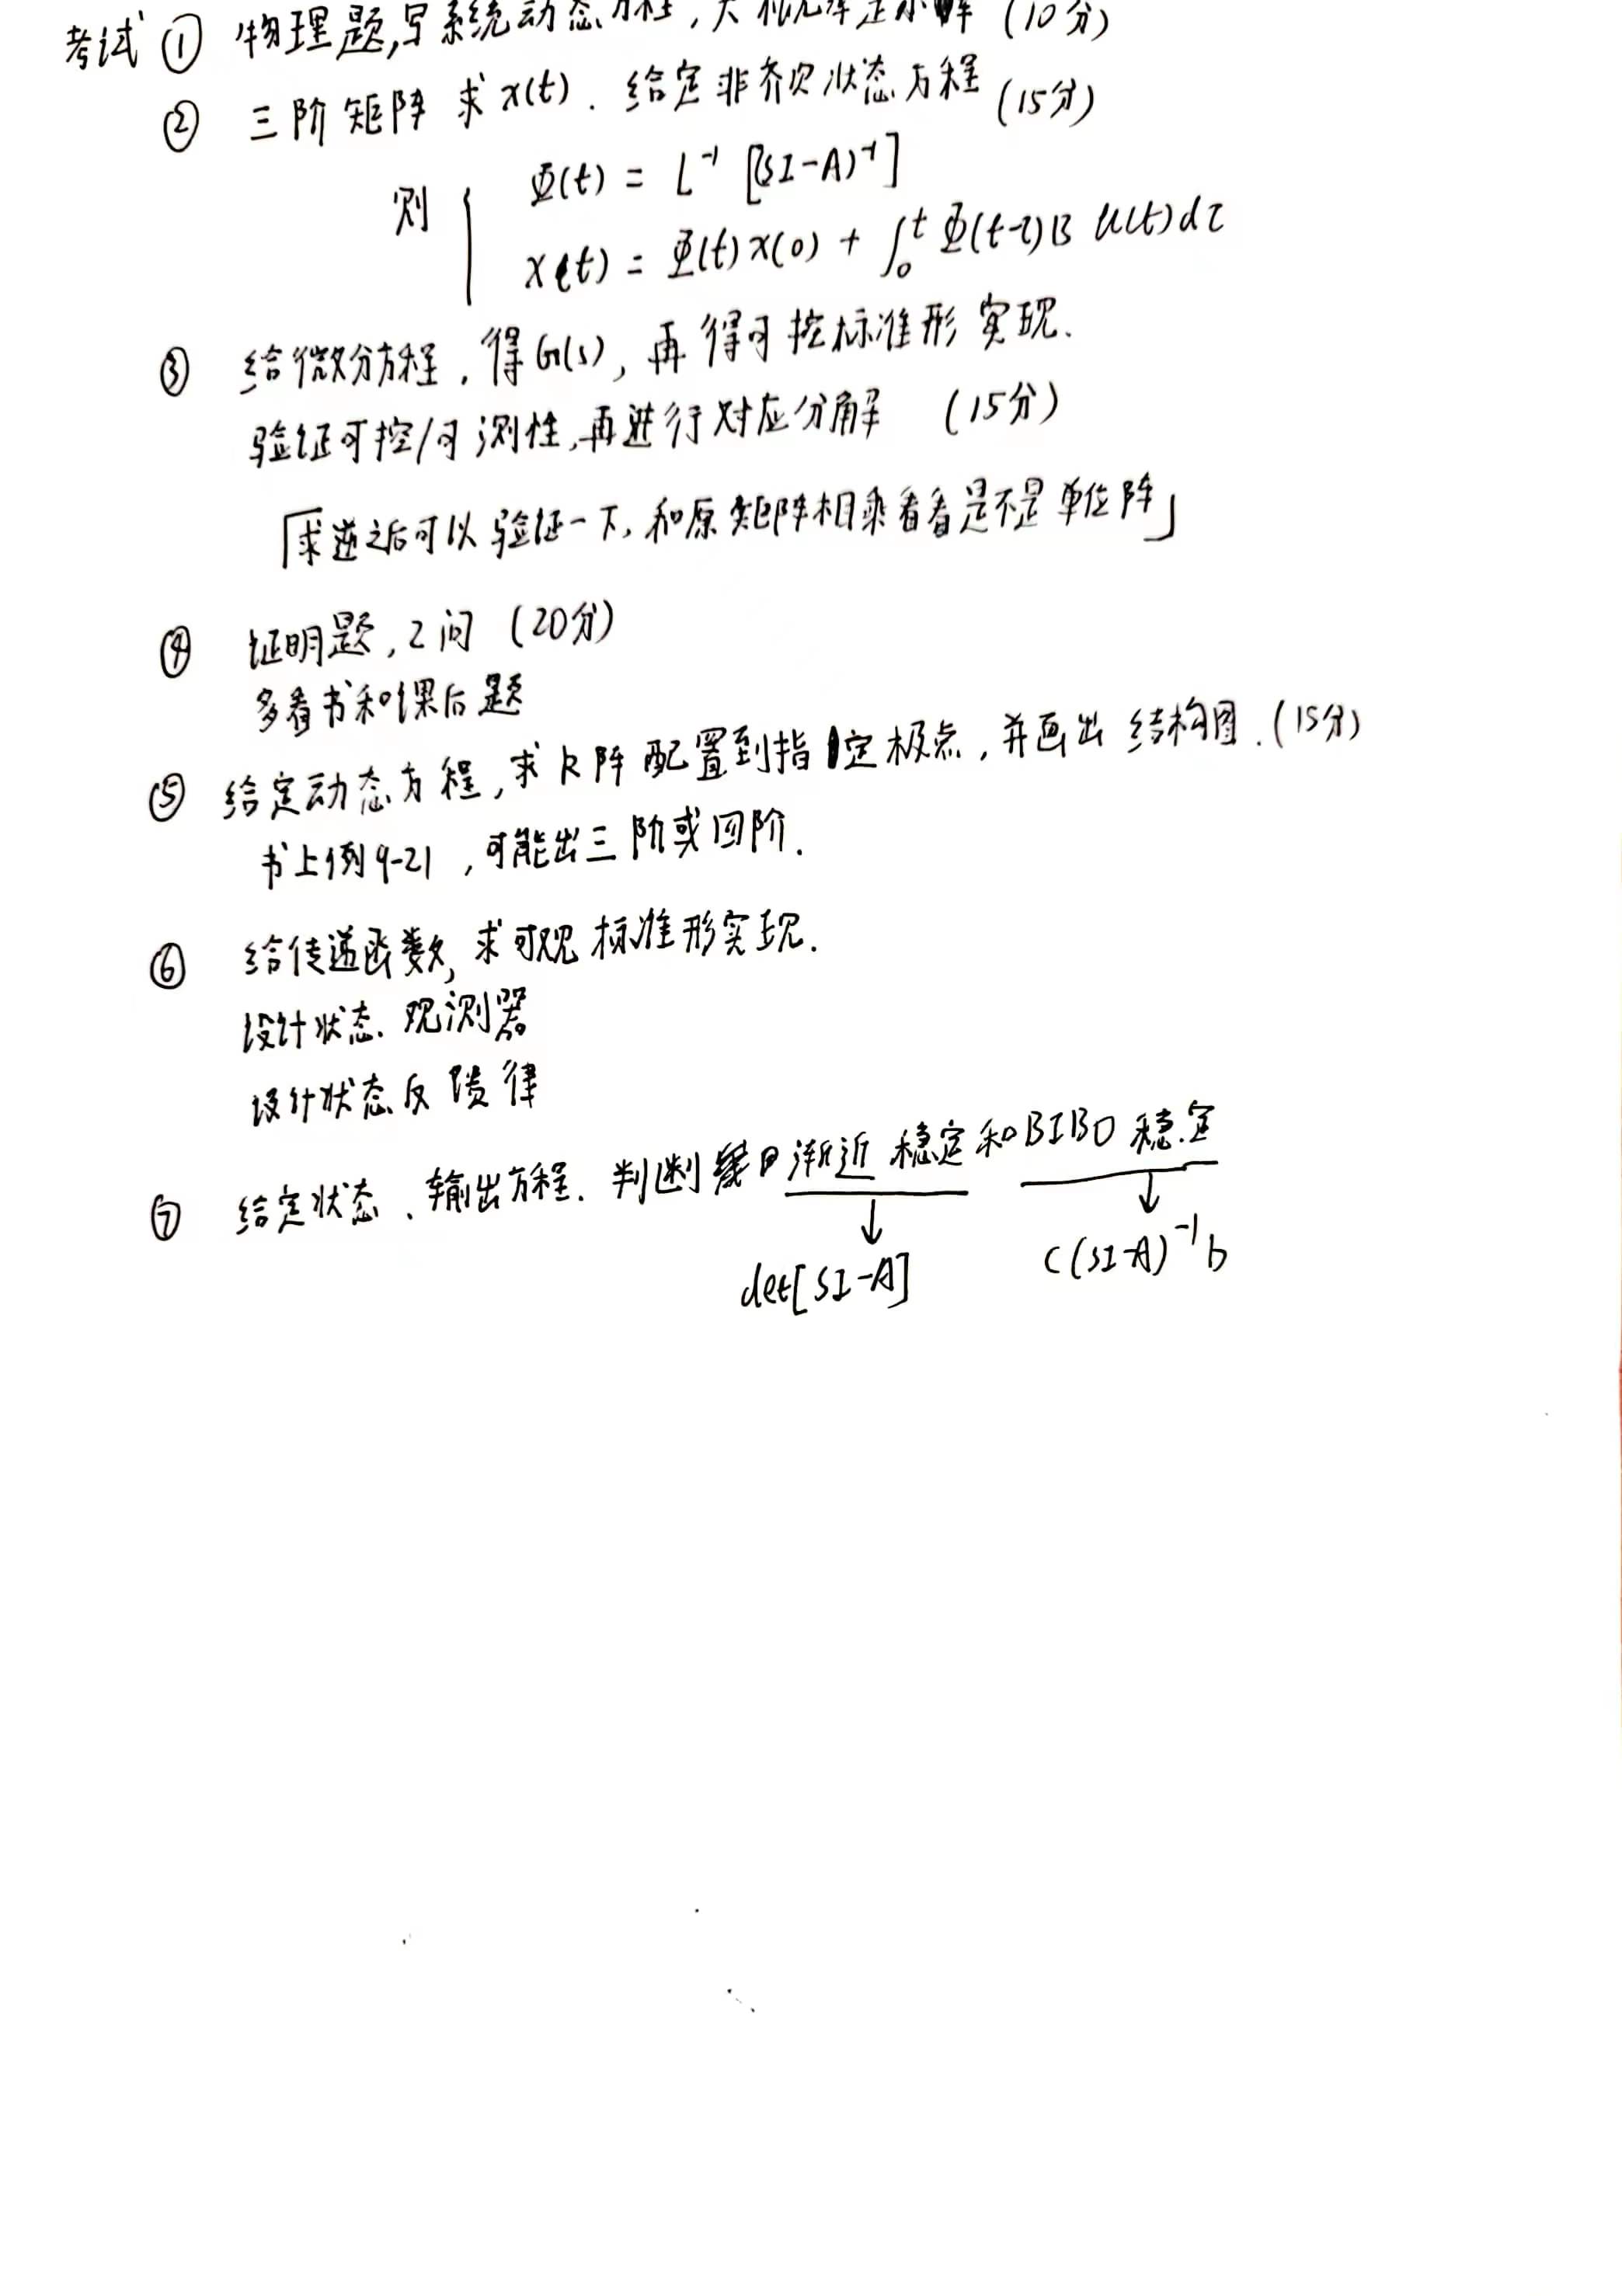 考试 ① 物理题,写系统动态方程, (10分)
② 三阶矩阵 求x(t). 给定非齐次状态方程 (15分)
则 { Φ(t) = L⁻¹ [(sI-A)⁻¹]
x(t) = Φ(t)x(0) + ∫₀ᵗ Φ(t-τ)B u(t)dτ
③ 给微分方程, 得G(s), 再得可控标准形实现.
验证可控/可测性,再进行对应分解 (15分)
「求逆之后可以验证一下, 和原矩阵相乘看看是不是单位阵」
④ 证明题, 2问 (20分)
多看书和课后题
⑤ 给定动态方程, 求K阵配置到指定极点, 并画出结构图. (15分)
书上例9-21, 可能出三阶或四阶.
⑥ 给传递函数, 求可观标准形实现.
设计状态观测器
设计状态反馈律
⑦ 给定状态、输出方程. 判断渐近稳定和BIBO稳定
↓ ↓
det[sI-A] c(sI-A)⁻¹b